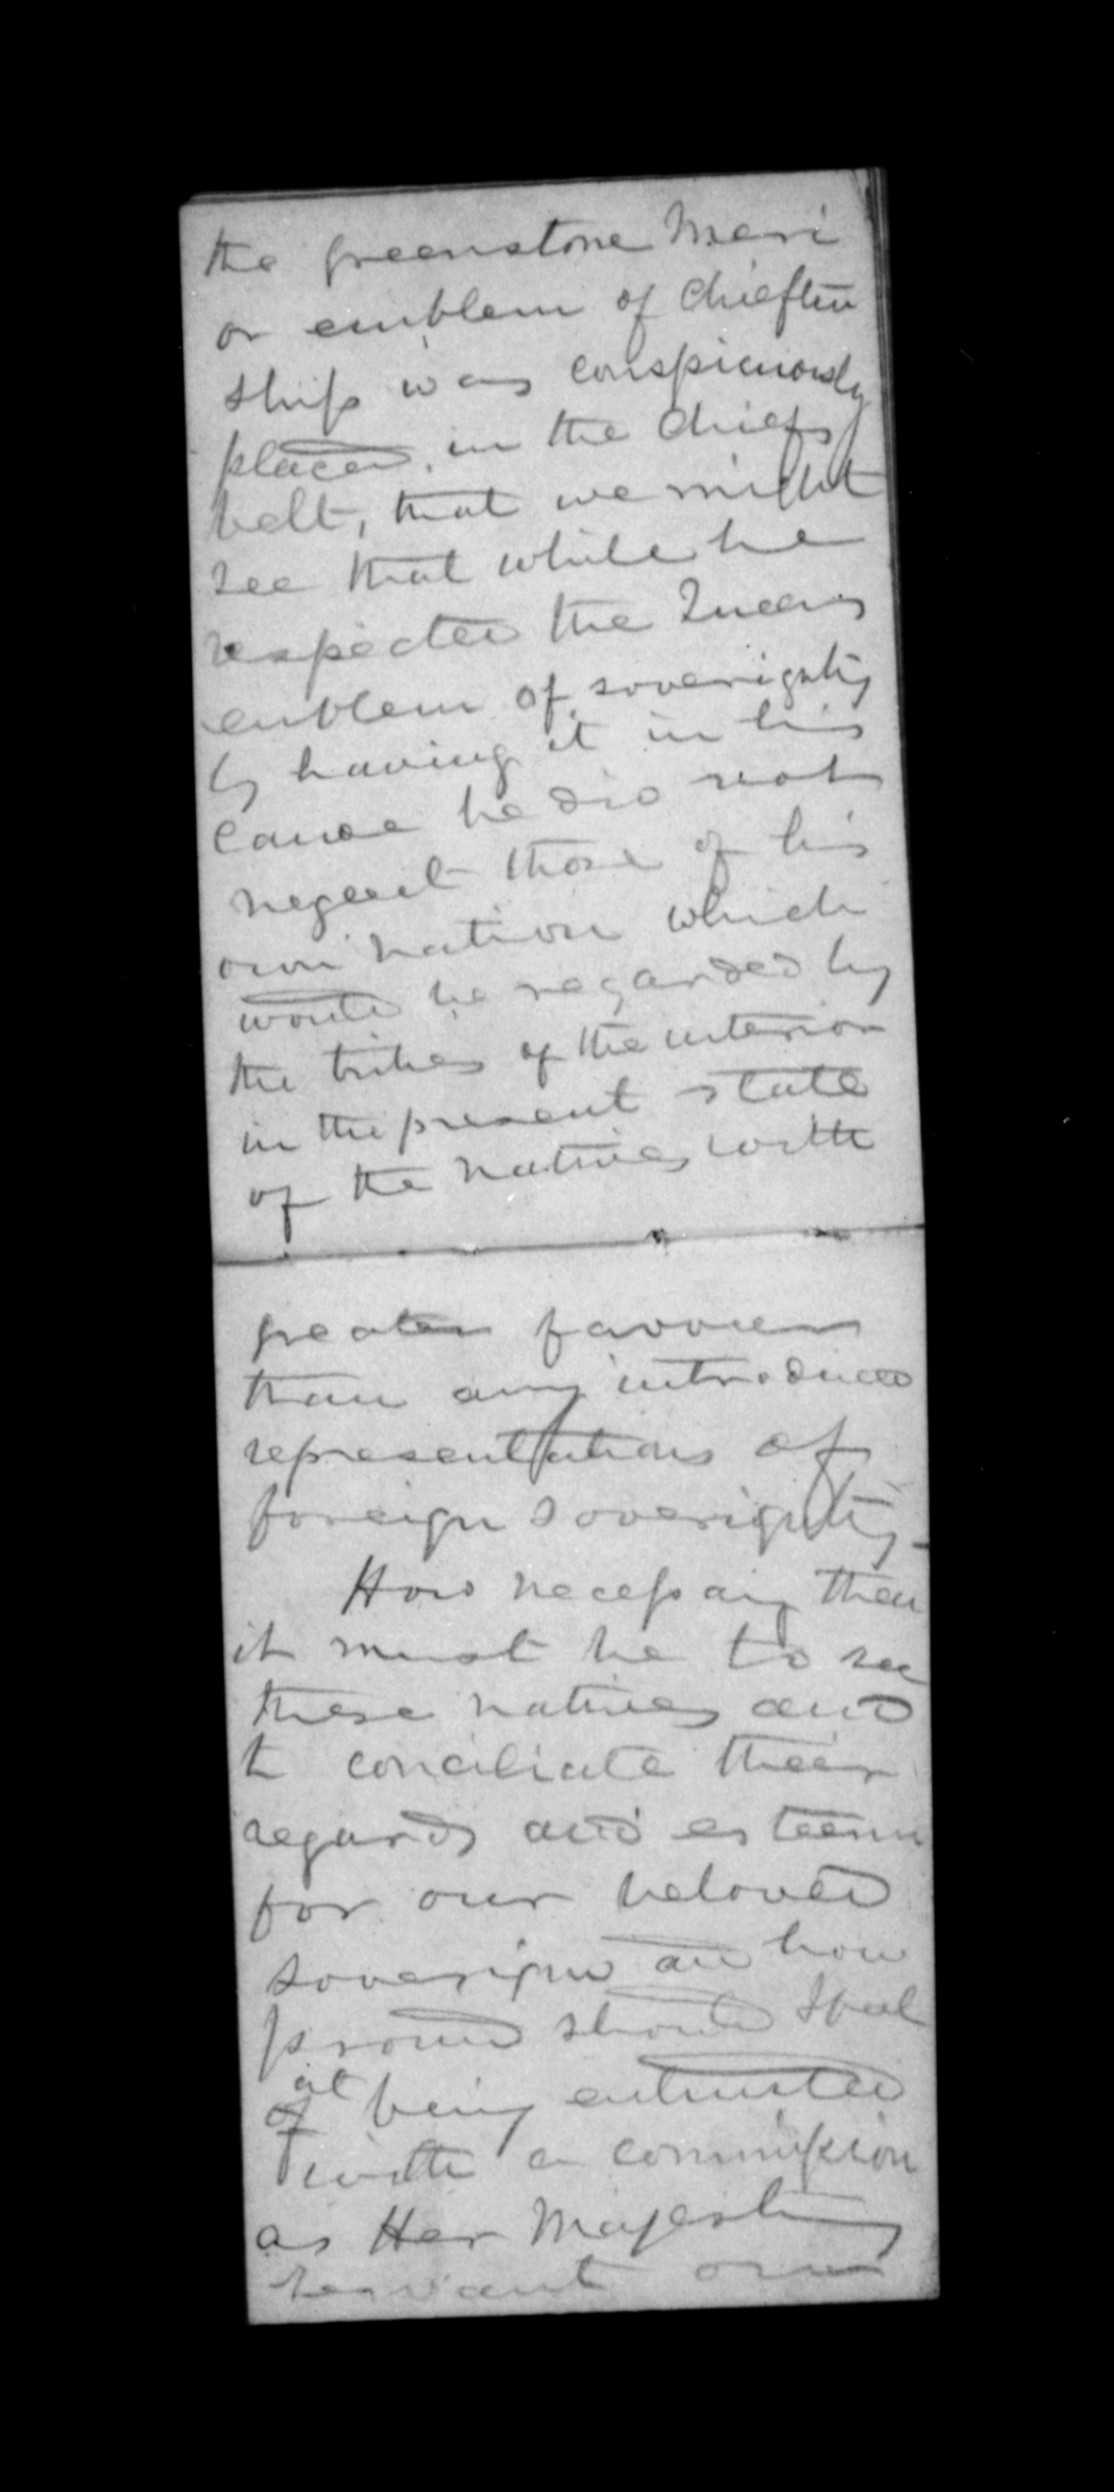 the greenstone Meri
or emblem of Chieftin
ship was conspicuously
placed, in the Chiefs
belt, that we might
see that while he
respected the Queens
emblem of soverignty
by having it in his
Canoe he did not
neglect those of his
own nation which
would be regarded by
the tribes of the interior
in the present state
of the natives with
greater favour
than any introduced
representations of
foreign soverignty -
How necessary then
it must be to see
these natives and
to conciliate their
regards and esteem
for our beloved
soverign and how
proud should I feel
at
of being entrusted
with a commission
as Her Majesty
servant